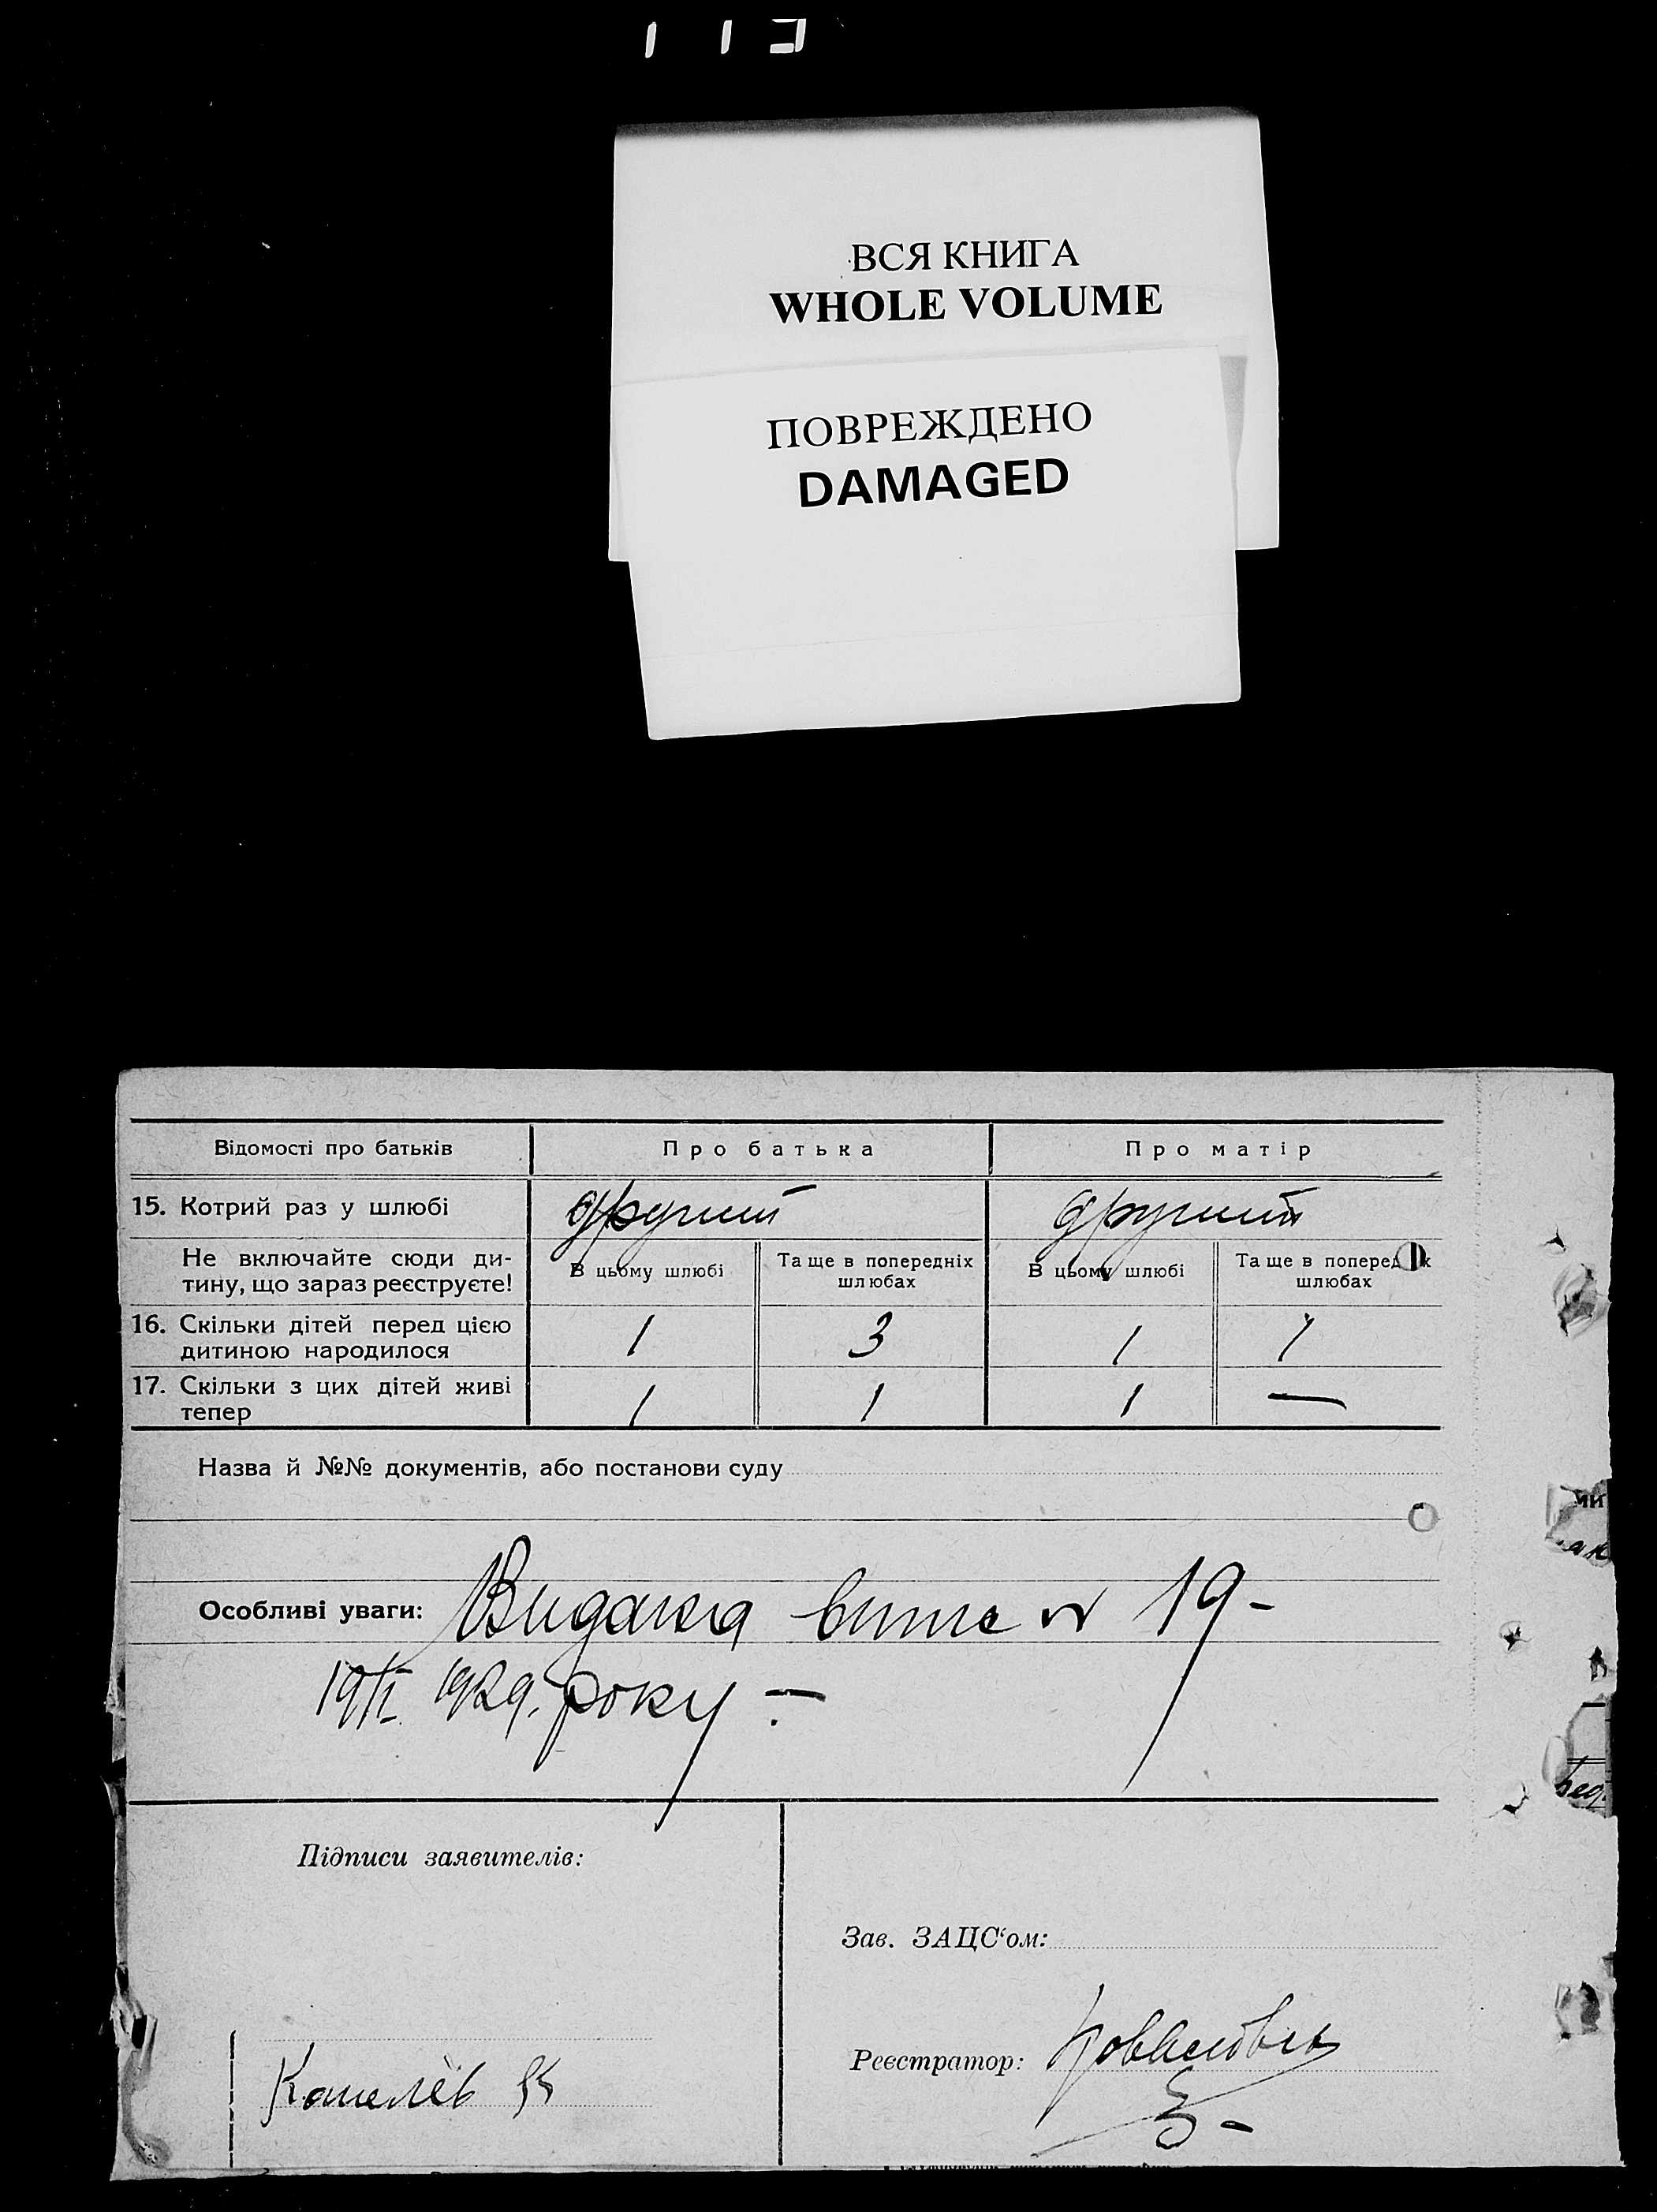 ВСЯ КНИГА
WHOLE VOLUME
ПОВРЕЖДЕНО
DAMAGED
Відомості про батьків Про батька Про матір
15. Котрий раз у шлюбі другий другий
Не включайте сюди ди-
тину, що зараз реєструєте!
В цьому шлюбі Та ще в попередніх шлюбах В цьому шлюбі Та ще в поперед х шлюбах
16. Скільки дітей перед цією
дитиною народилося 1 3 1 1
17. Скільки з цих дітей живі
тепер 1 1 1 —
Назва й №№ документів, або постанови суду
Особливі уваги: Видана випис № 19-
1929. року —
Підписи заявителів:
Зав. ЗАЦС‘ом:
Реєстратор:
Кошелев